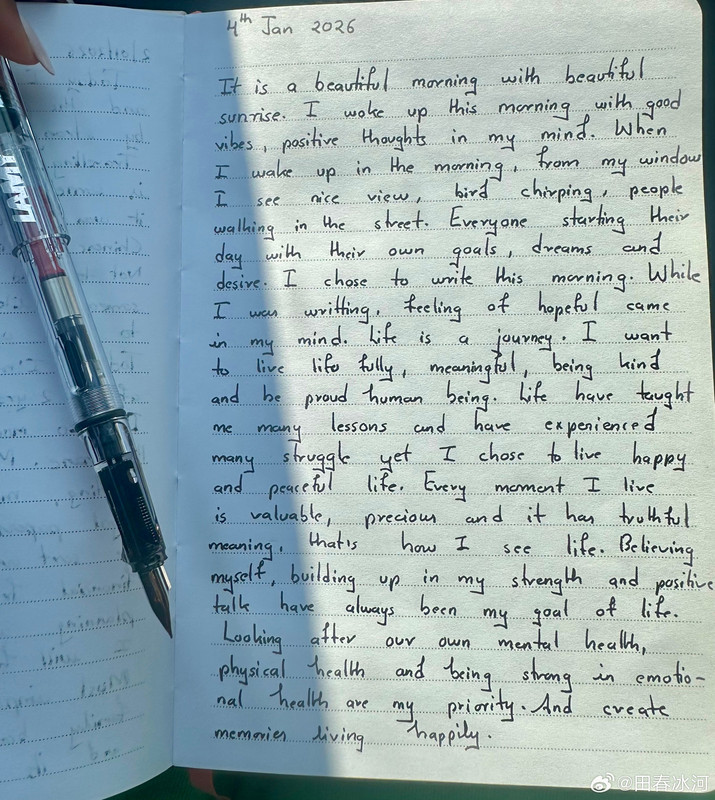 LAMY
4th Jan 2026
It is a beautiful morning with beautiful
sunrise. I woke up this morning with good
vibes, positive thoughts in my mind. When
I wake up in the morning, from my window
I see nice view, bird chirping, people
walking in the street. Everyone starting their
day with their own goals, dreams and
desire. I chose to write this morning. While
I was writting, feeling of hopeful came
in my mind. Life is a journey. I want
to live life fully, meaningful, being kind
and be proud human being. Life have taught
me many lessons and have experienced
many struggle yet I chose to live happy
and peaceful life. Every moment I live
is valuable, precious and it has truthful
meaning, thatis how I see life. Believing
myself, building up in my strength and positive
talk have always been my goal of life.
Looking after our own mental health,
physical health and being strong in emotio-
nal health are my priority. And create
memories living happily.
@田春冰河